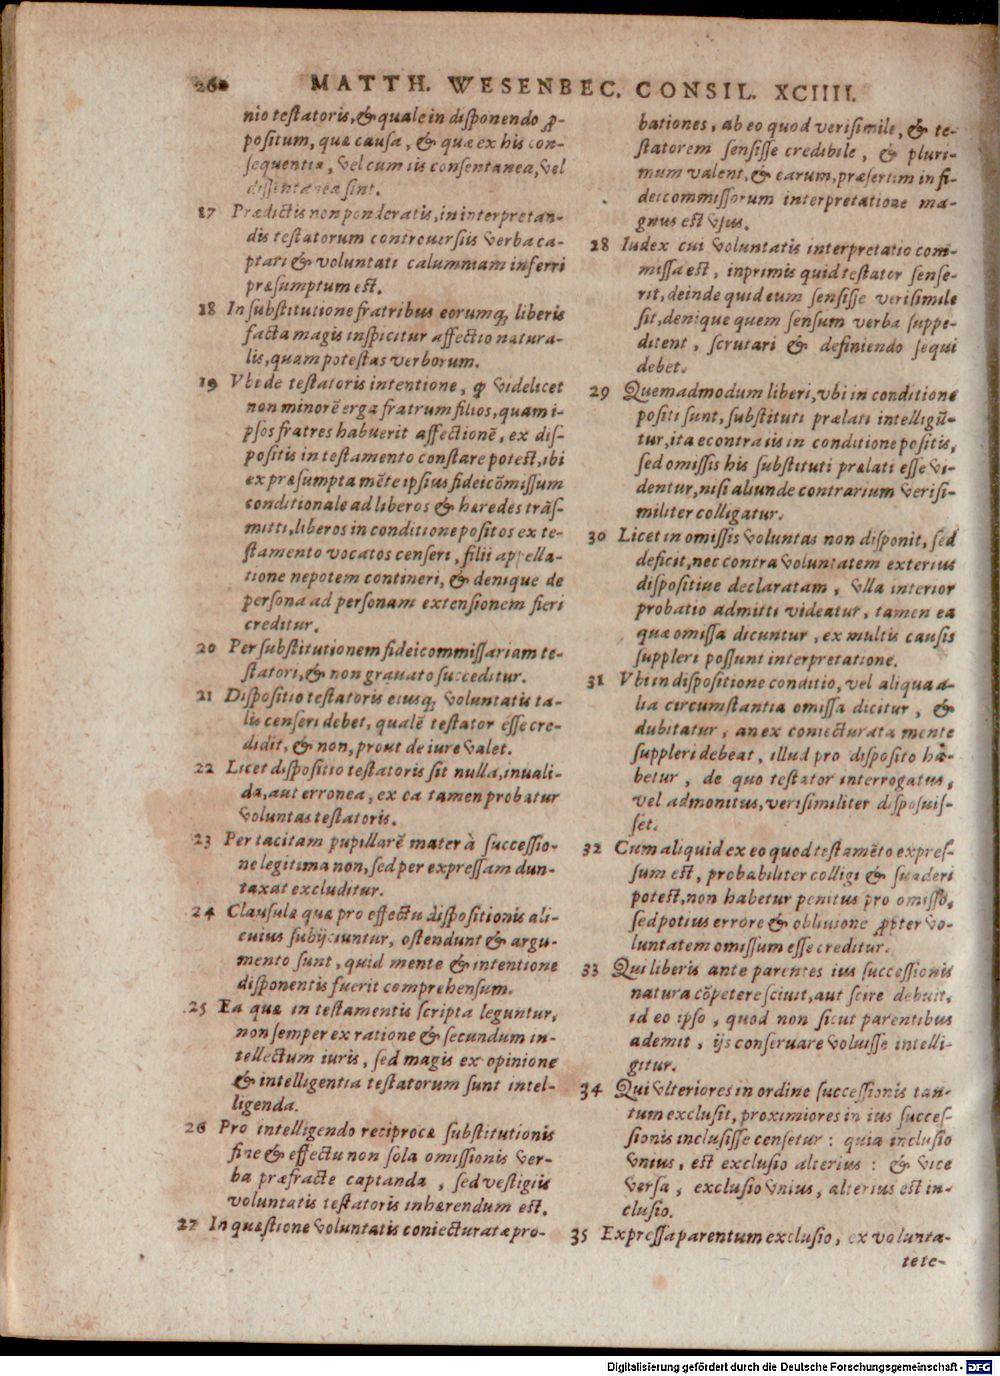 260 MATTH. WESENBEC. CONSIL. XCIIII.
nio testatoris, & quale in disponendo ꝓ-
positum, quæ causa, & quæ ex his con-
sequentia, vel cum iis consentanea, vel
dissentanea sint.
17 Prædictis non ponderatis, in interpretan-
dis testatorum controuersiis verba ca-
ptari & voluntati calumniam inferri
præsumptum est.
18 In substitutione fratribus eorumq́; liberis
facta magis inspicitur affectio natura-
lis, quam potestas verborum.
19 Vbi de testatoris intentione, ꝙ videlicet
non minorē erga fratrum filios, quam i-
psos fratres habuerit affectionē, ex dis-
positis in testamento constare potest, ibi
ex præsumpta mēte ipsius fideicōmissum
conditionale ad liberos & hæredes trās-
mitti, liberos in conditione positos ex te-
stamento vocatos censeri, filii appella-
tione nepotem contineri, & denique de
persona ad personam extensionem fieri
creditur.
20 Per substitutionem fideicommissariam te-
statori, & non grauato succeditur.
21 Dispositio testatoris eiusq́; voluntatis ta-
lis censeri debet, qualē testator esse cre-
didit, & non, prout de iure valet.
22 Licet dispositio testatoris sit nulla, inuali-
da, aut erronea, ex ea tamen probatur
voluntas testatoris.
23 Per tacitam pupillarē mater à successio-
ne legitima non, sed per expressam dun-
taxat excluditur.
24 Clausulæ quæ pro effectu dispositionis ali-
cuius subijciuntur, ostendunt & argu-
mento sunt, quid mente & intentione
disponentis fuerit comprehensum.
25 Ea quæ in testamentis scripta leguntur,
non semper ex ratione & secundum in-
tellectum iuris, sed magis ex opinione
& intelligentia testatorum sunt intel-
ligenda.
26 Pro intelligendo reciprocæ substitutionis
fine & effectu non sola omissionis ver-
ba præfracte captanda, sed vestigiis
voluntatis testatoris inhærendum est.
27 In quæstione voluntatis coniecturatæ pro-
bationes, ab eo quod verisimile, & te-
statorem sensisse credibile, & pluri-
mum valent, & earum, præsertim in fi-
deicommissorum interpretatione ma-
gnus est vsus.
28 Iudex cui voluntatis interpretatio com-
missa est, inprimis quid testator sense-
rit, deinde quid eum sensisse verisimile
sit, denique quem sensum verba suppe-
ditent, scrutari & definiendo sequi
debet.
29 Quemadmodum liberi, vbi in conditione
positi sunt, substituti prælati intelligū-
tur, ita econtra iis in conditione positis,
sed omissis his substituti prælati esse vi-
dentur, nisi aliunde contrarium verisi-
militer colligatur.
30 Licet in omissis voluntas non disponit, sed
deficit, nec contra voluntatem exterius
dispositiue declaratam, vlla interior
probatio admitti videatur, tamen ea
quæ omissa dicuntur, ex multis causis
suppleri possunt interpretatione.
31 Vbi in dispositione conditio, vel aliqua a-
lia circumstantia omissa dicitur, &
dubitatur, an ex coniecturata mente
suppleri debeat, illud pro disposito ha-
betur, de quo testator interrogatus,
vel admonitus, verisimiliter disposuis-
set.
32 Cum aliquid ex eo quod testamēto expres-
sum est, probabiliter colligi & suaderi
potest, non habetur penitus pro omisso,
sed potius errore & obliuione ꝓpter vo-
luntatem omissum esse creditur.
33 Qui liberis ante parentes ius successionis
natura cōpetere sciuit, aut scire debuit,
id eo ipso, quod non sicut parentibus
ademit, ijs conseruare voluisse intelli-
gitur.
34 Qui vlteriores in ordine successionis tan-
tum exclusit, proximiores in ius succes-
sionis inclusisse censetur: quia inclusio
vnius, est exclusio alterius: & vice
versa, exclusio vnius, alterius est in-
clusio.
35 Expressa parentum exclusio, ex volunta-
te te-
Digitalisierung gefördert durch die Deutsche Forschungsgemeinschaft - DFG